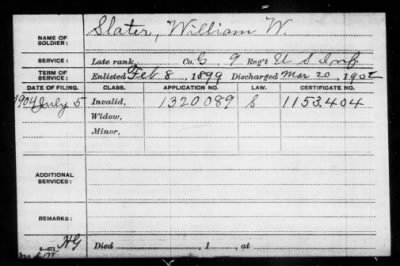 NAME OF SOLDIER: Slater, William W.
SERVICE: Late rank, Co. G, 9 Reg't U S Inf
TERM OF SERVICE: Enlisted Feb 8, 1899 Discharged Mar 20, 1902
DATE OF FILING. CLASS. APPLICATION NO. LAW. CERTIFICATE NO.
1904 July 5 Invalid, 1320089 S 1153,404
Widow,
Minor,
ADDITIONAL SERVICES:
REMARKS:
Died , 1 , at